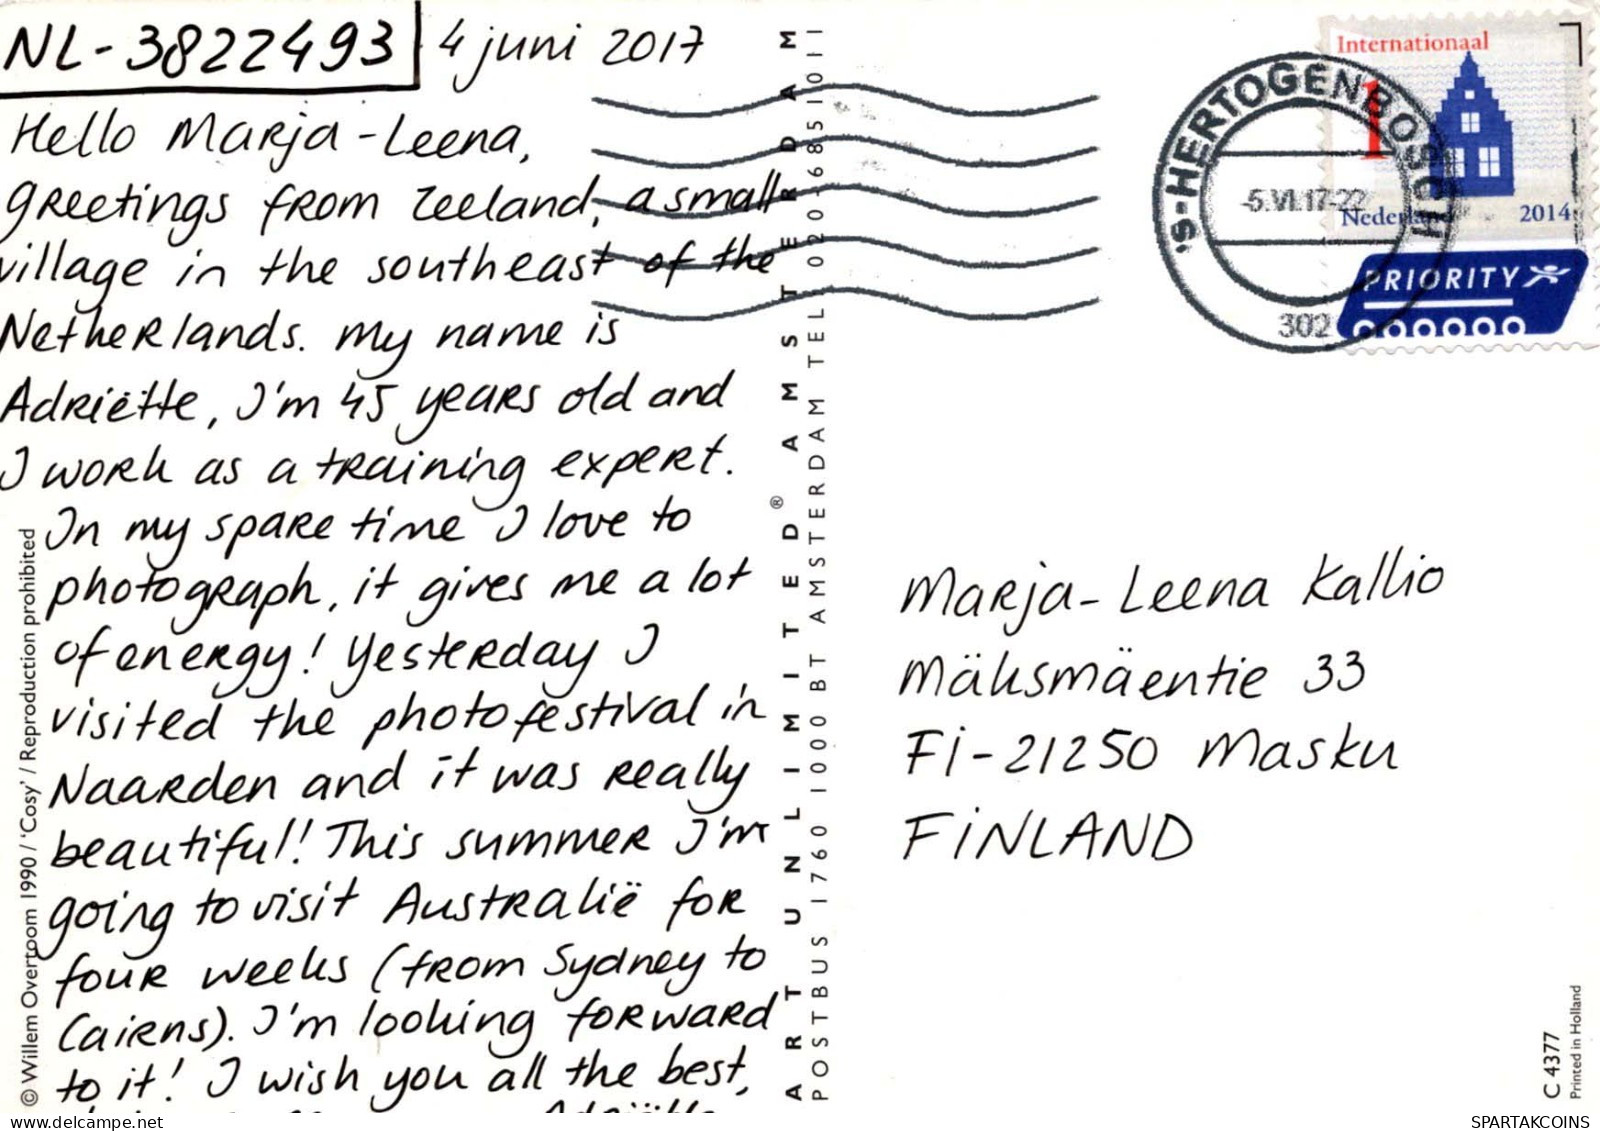 NL-3822493 4 juni 2017
Hello Marja-Leena,
greetings from Zeeland, a small
village in the southeast of the
Netherlands. My name is
Adriëtte, I'm 45 years old and
I work as a training expert.
In my spare time I love to
photograph, it gives me a lot
of energy! Yesterday I
visited the photofestival in
Naarden and it was really
beautiful! This summer I'm
going to visit Australië for
four weeks (from Sydney to
Cairns). I'm looking forward
to it! I wish you all the best,
Adriëtte
© Willem Overtoom 1990 / 'Cosy' / Reproduction prohibited
ART UNLIMITED® AMSTERDAM
POSTBUS 1760 1000 BT AMSTERDAM TEL. 020-6851011
'S-HERTOGENBOSCH
-5.VI.17-22
302
Internationaal
1
Nederland 2014
PRIORITY
Marja-Leena Kallio
Mäksmäentie 33
Fi-21250 Masku
FiNLAND
C 4377
Printed in Holland
SPARTAKCOINS